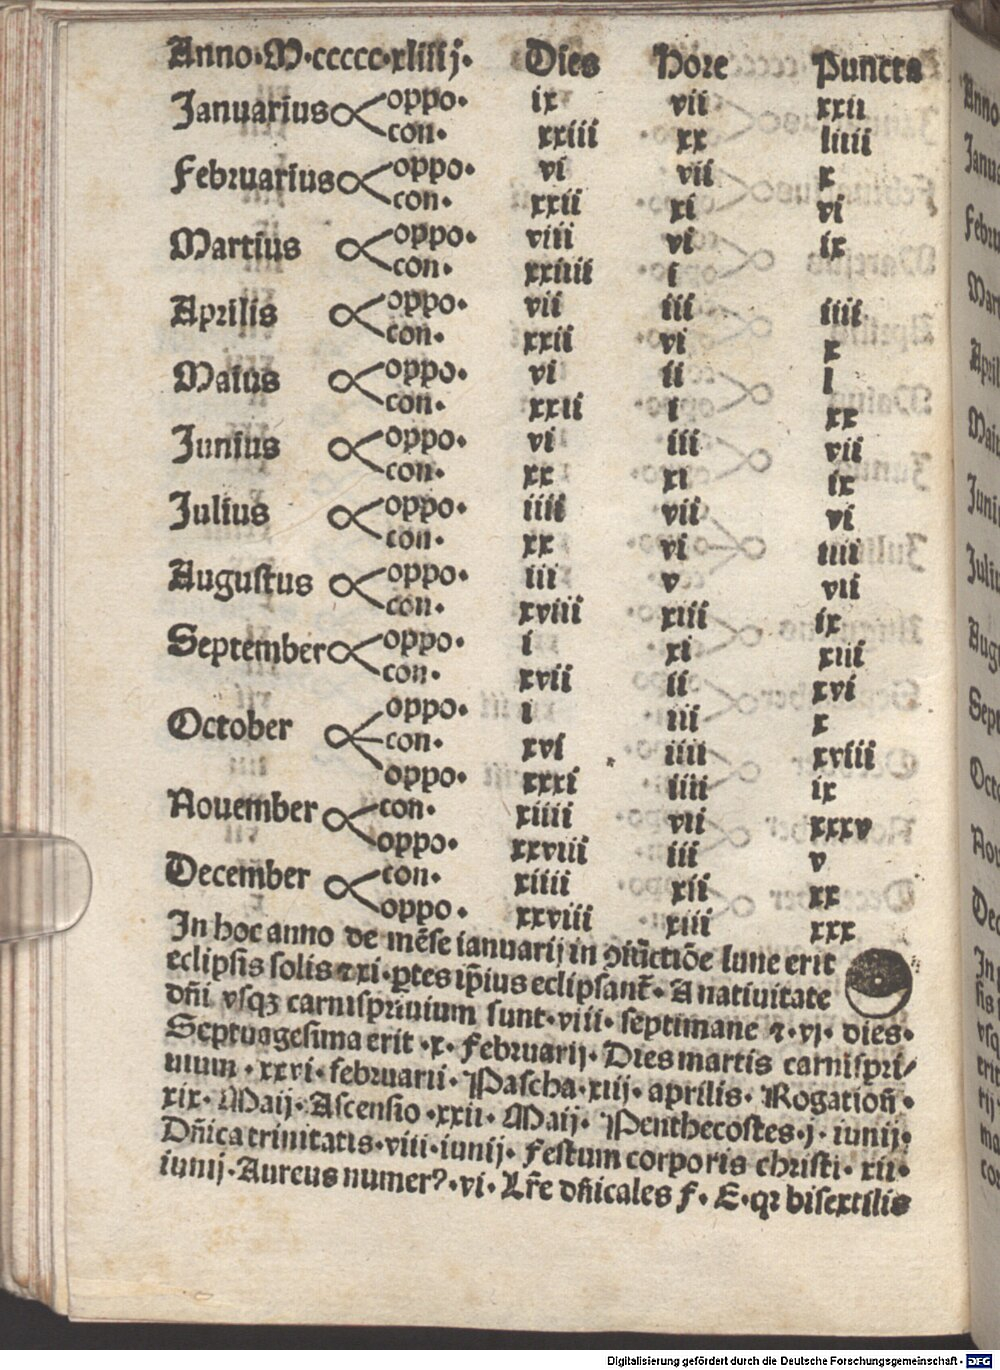 Anno·M·ccccc·xliiij· Dies Hore Puncta
Januarius oppo· ix vii xxii
con· xxiii xx liiii
Februarius oppo· vi vii x
con· xxii xi vi
Martius oppo· viii vi ix
con· xxiiii i
Aprilis oppo· vii iii iiii
con· xxii vi x
Maius oppo· vi ii l
con· xxii i xx
Junius oppo· vi iii vii
con· xx xi ix
Julius oppo· iiii vii vi
con· xx vi iiii
Augustus oppo· iii v vii
con· xviii xiii ix
September oppo· i xi xiii
con· xvii ii xvi
October oppo· i iii x
con· xvi iiii xviii
oppo· xxxi iiii ix
Nouember con· xiiii vii xxxv
oppo· xxviii iii v
December con· xiiii xii xx
oppo· xxviii xiii xxx
In hoc anno de mẽse ianuarij in ꝯiũctiõe lune erit
eclipsis solis ⁊ xi· ꝑtes ip̃ius eclipsant̃· A natiuitate
dñi vsqꝫ carnispriuium sunt·viii· septimane ⁊·vj· dies·
Septuagesima erit ·x· Februarij· Dies martis carnispri/
uium · xxvi· februarii· Pascha·xiij· aprilis· Rogatioñ·
xix· Maij· Ascensio ·xxii· Maij· Penthecostes·j· iunij·
Dñica trinitatis·viii·iunij· Festum corporis christi· xii·
iunij·Aureus numerꝰ·vi· Lr̃e dñicales f· E·qꝛ bisextilis
Digitalisierung gefördert durch die Deutsche Forschungsgemeinschaft - DFG